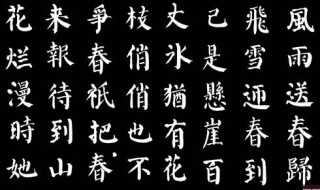 風雨送春歸
飛雪迎春到
已是懸崖百
丈氷猶有花
枝俏俏也不
爭春祇把春
来報待到山
花烂漫時她